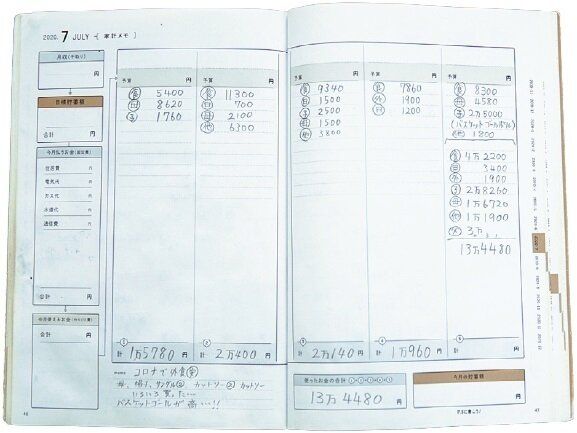 2020. 7 JULY 家計メモ
月収(手取り)
円
目標貯蓄額
合計 円
今月払うお金(固定費)
住居費 円
電気代 円
ガス代 円
水道代 円
通信費 円
合計 円
今月使えるお金
合計 円
予算 円
食 5400
日 8620
子 1760
① 計 1万5780 円
予算 円
食 11300
日 700
母 2100
他 6300
② 計 2万400 円
memo コロナで外食
母、帽子、サンダル カットソー カットソー
いろいろ買った…
バスケットゴールが高い…!!
46
予算 円
食 9340
日 1500
子 2500
母 1500
他 3800
③ 計 2万140 円
予算 円
食 7860
外 1900
日 1200
④ 計 1万960 円
予算 円
食 8300
母 4580
子 2万5000
(バスケットゴール
他 1800
食 4万2200
日 3400
外 1900
子 2万8260
母 1万6720
他 1万1900
父 3万
13万4480
⑤ 計 円
使ったお金の合計
13万4480 円
今月の貯蓄額
円
P.5に書こう!
47